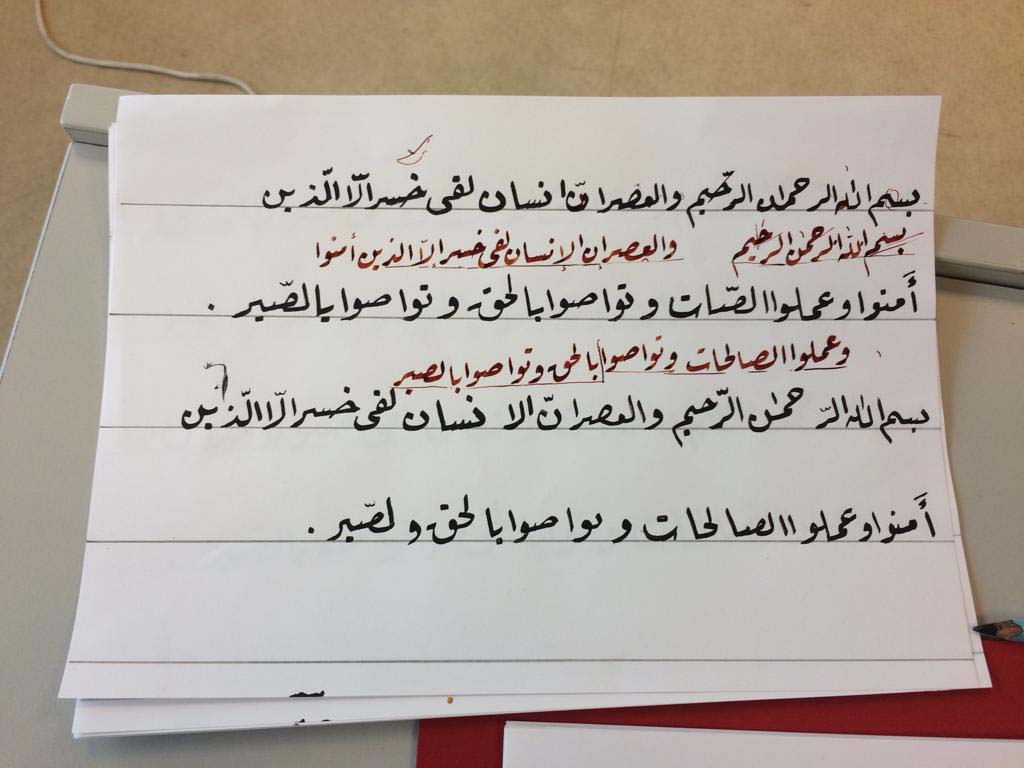 بسم الله الرحمان الرّحيم والعصر انّ انسان لفى خسر الّا الّذين
بسم الله الرحمٰن الرحيم والعصر ان الإنسان لفى خسر إلّا الذين أمنوا
أَمنوا و عملوا الصّات و تواصوا بالحق و تواصوا بالصّبر .
وعملوا الصالحات وتواصوا بالحق وتواصوا بالصبر
بسم الله الرّحمٰن الرّحيم والعصر انّ الانسان لفى خسر الّا الّذين
أَمنوا و عملوا الصالحات و تواصوا بالحق و لصّبر .